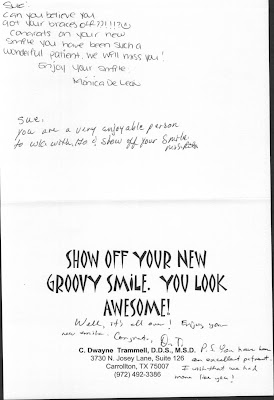 Sue!
Can you believe you
got your braces off??!!!?☺
Congrats on your new
Smile you have been such a
wonderful patient, we will miss you!
Enjoy your smile
Monica De Leon
Sue,
you are a very enjoyable person
to wk with. Go & show off your Smile
SHOW OFF YOUR NEW
GROOVY SMILE. YOU LOOK
AWESOME!
Well, it's all over! Enjoy your
new smile. Congrats, Dr. T.
C. Dwayne Trammell, D.D.S., M.S.D.
3730 N. Josey Lane, Suite 126
Carrollton, TX 75007
(972) 492-3386
P.S. You have been
an excellent patient.
I wish that we had
more like you!